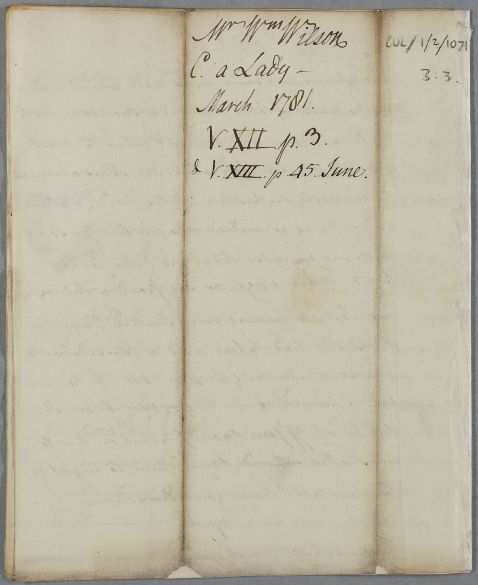 Mr Wm Wilson
C. a Lady –
March 1781.
V. XII p. 3.
& V. XIII. p 45. June.
CUL/1/2/1071
3: 3.